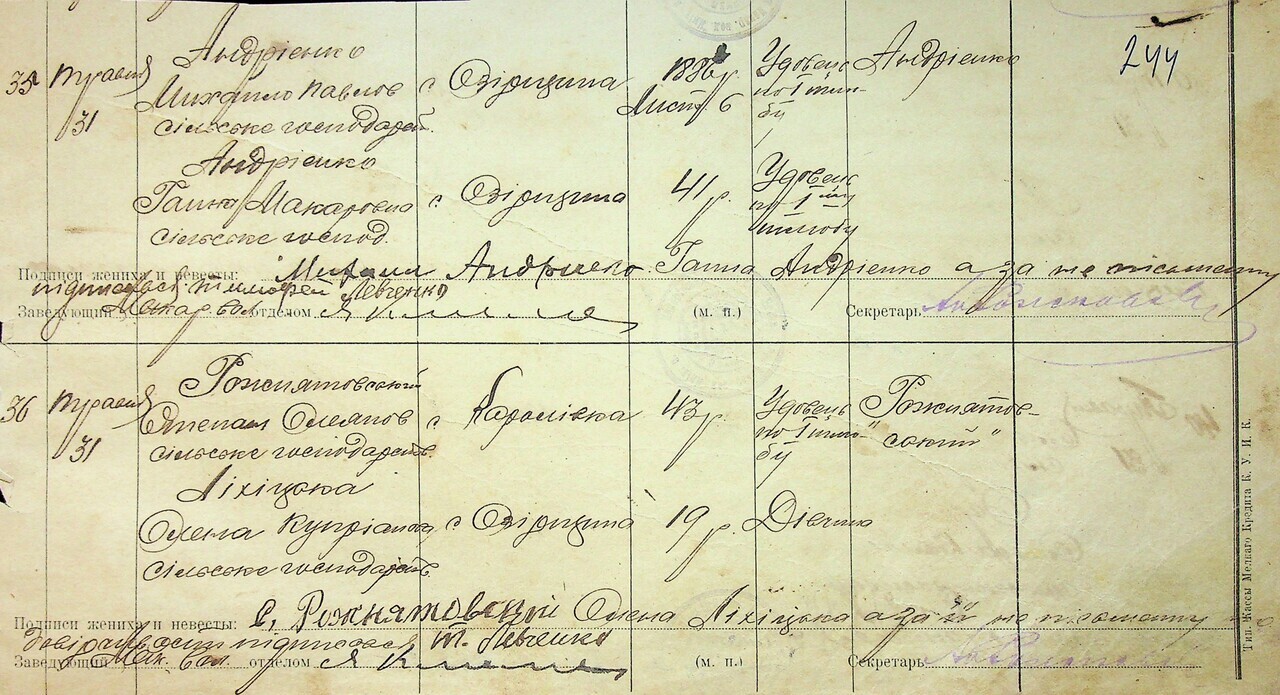 244
35
травня
31
Андрієнко
Михайло Павлов
сільське господарст.
с Озірщина
1886 р.
Лист 6
Удовець
по 1 шлю-
бу
Андрієнко
Андрієнко
Ганна Макаровна
сільське господ.
с Озірщина
41 р.
Удовець
по 1му
шлюбу
Подписи жениха и невесты: Михаил Андриенко Ганна Андрієнко а за не письменну
підписався Тимофей Левченко
Заведующий отделом
(м. п.)
Секретарь
36
травня
31
Рожнятовський
Степан Оліанов
сільське господарств.
с Королівка
43 р.
Удовець
по 1 шлю-
бу
Рожнятов-
ський
Ліхіцька
Олена Купріанова
сільське господарств.
с Озірщина
19 р.
Дівчина
Подписи жениха и невесты: С. Рожнятовский Олена Ліхіцька а за її не письменну
підписався Т. Левченко
Заведующий отделом
(м. п.)
Секретарь
Тип. Кассы Мелкаго Кредита К. У. И. К.